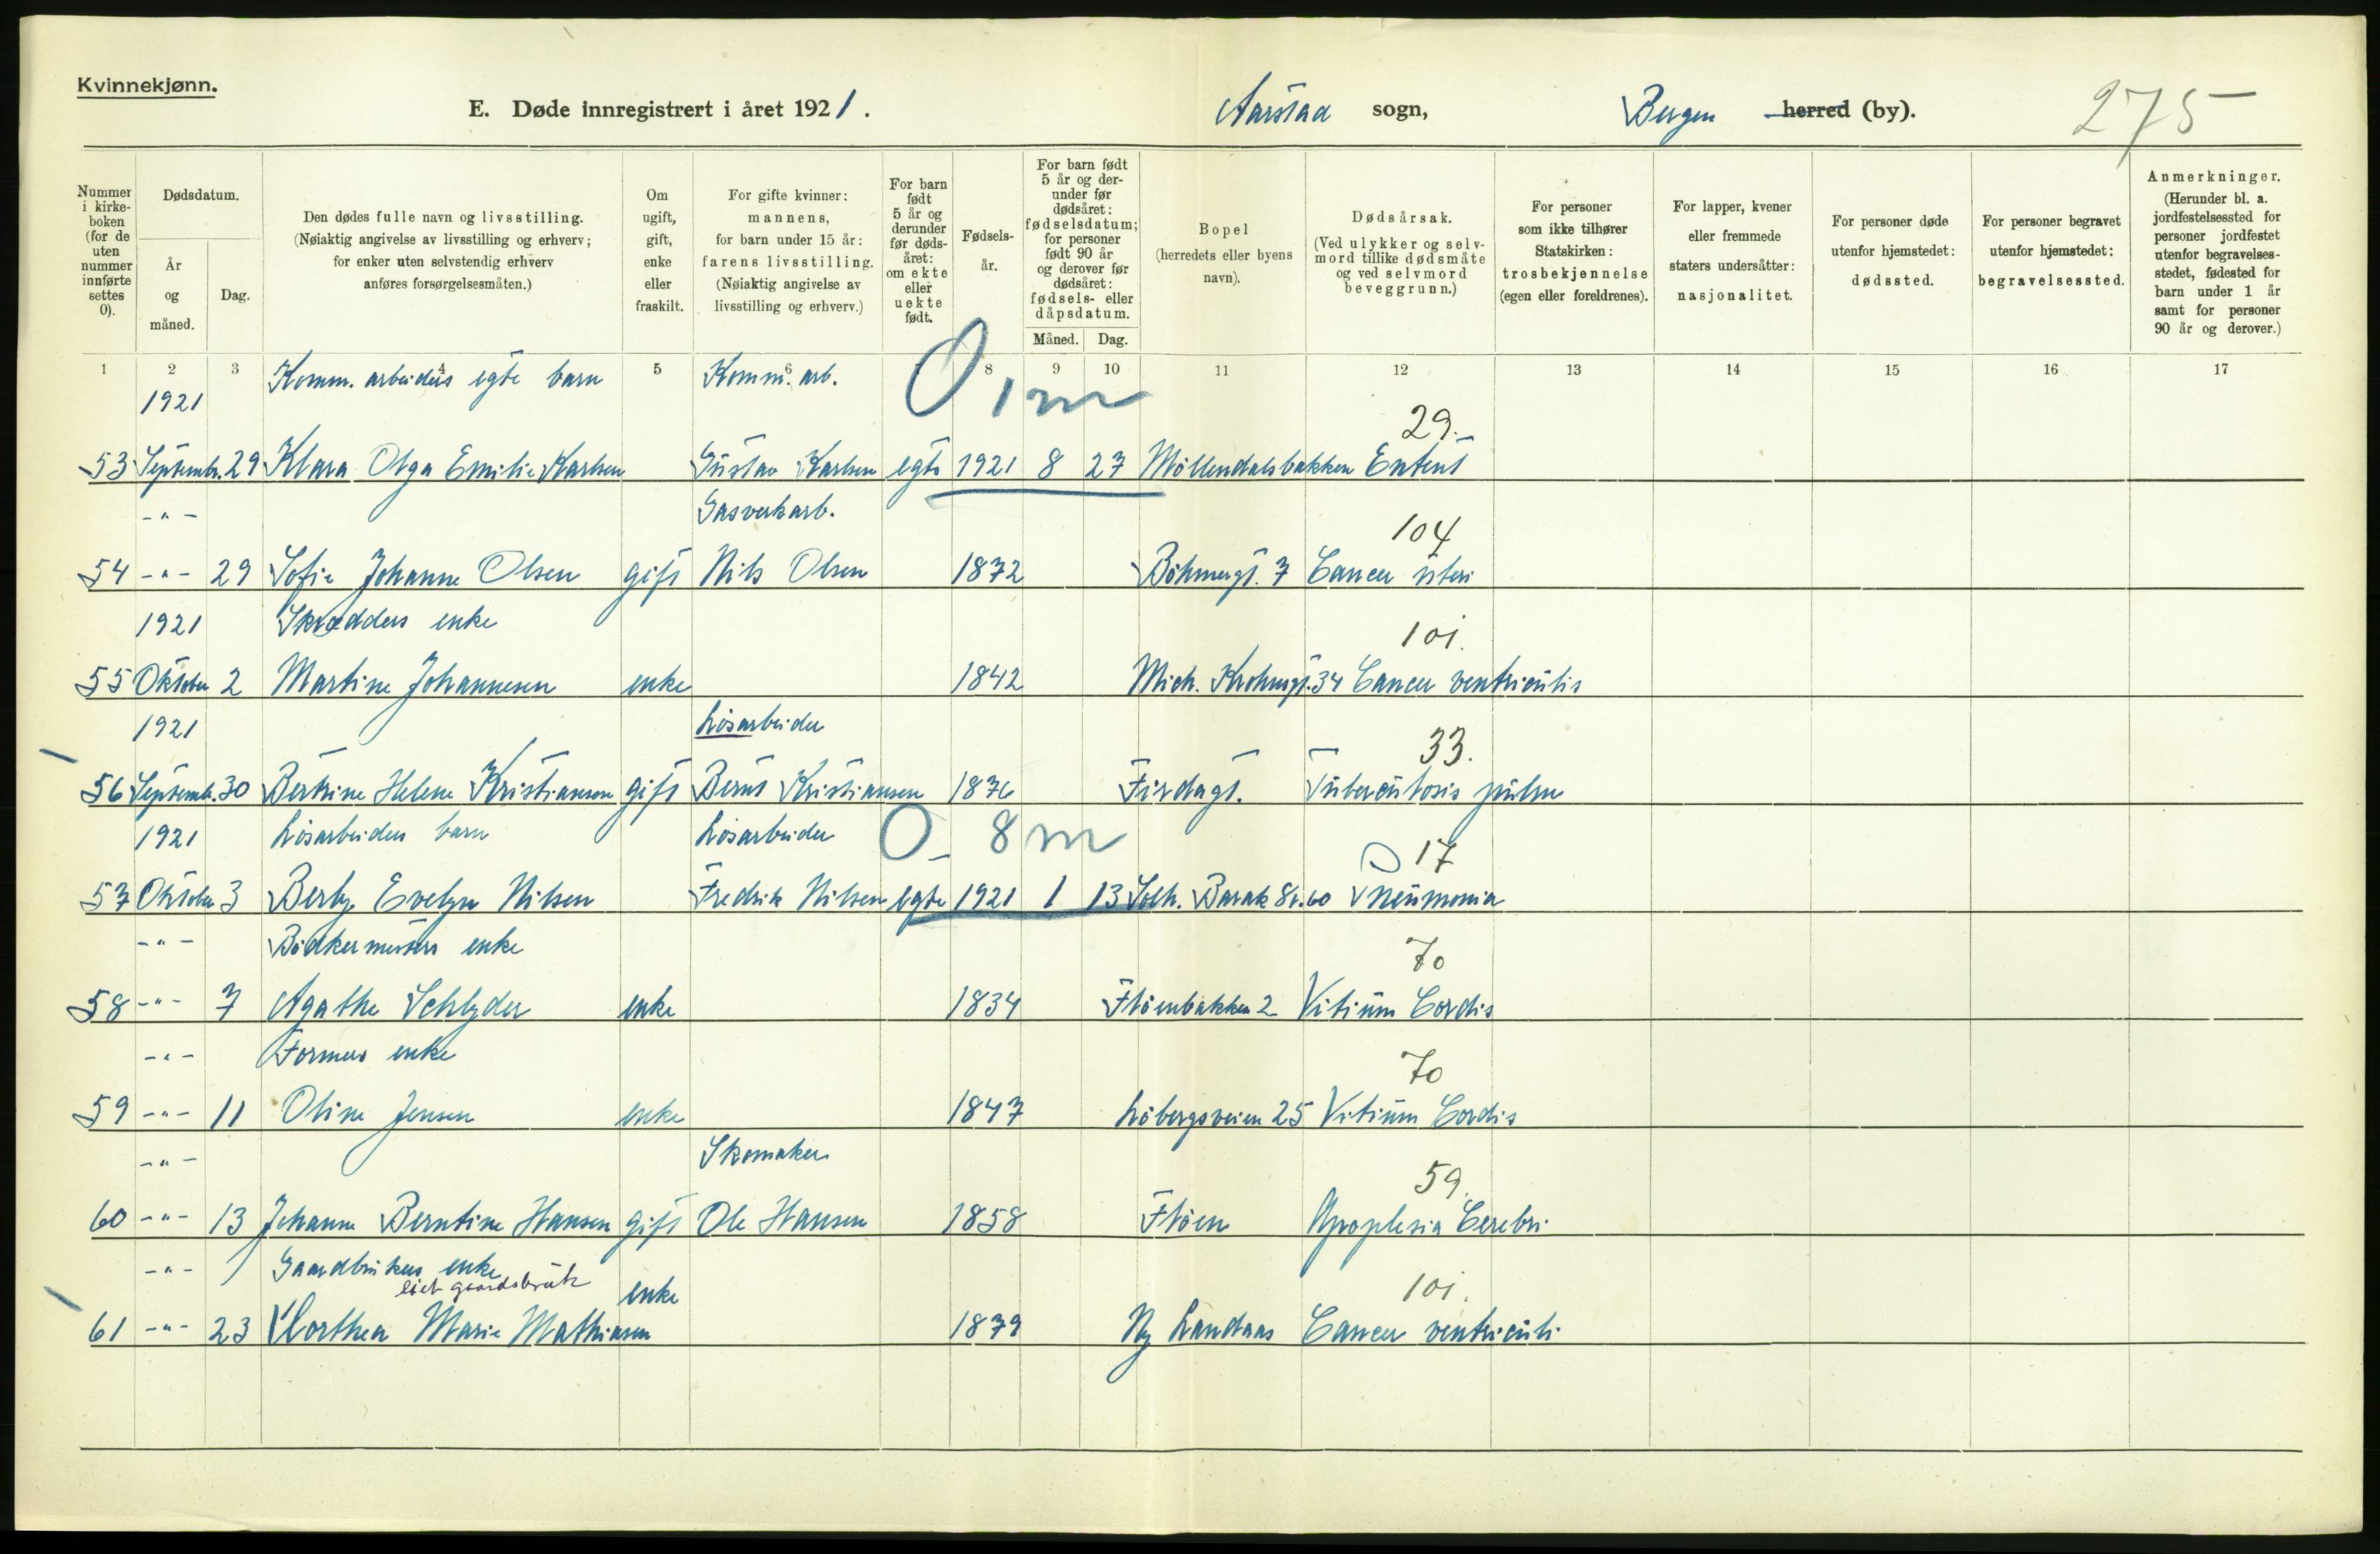 Kvinnekjønn.
E. Døde innregistrert i året 1921. Aarstad sogn, Bergen herred (by). 275
Nummer i kirkeboken (for de uten nummer innførte settes 0).
Dødsdatum.
År og måned.
Dag.
Den dødes fulle navn og livsstilling. (Nøiaktig angivelse av livsstilling og erhverv; for enker uten selvstendig erhverv anføres forsørgelsesmåten.)
Om ugift, gift, enke eller fraskilt.
For gifte kvinner: mannens, for barn under 15 år: farens livsstilling. (Nøiaktig angivelse av livsstilling og erhverv.)
For barn født 5 år og derunder før dødsåret: om ekte eller uekte født.
Fødselsår.
For barn født 5 år og derunder før dødsåret: fødselsdatum; for personer født 90 år og derover før dødsåret: fødsels- eller dåpsdatum.
Måned. Dag.
Bopel (herredets eller byens navn).
Dødsårsak. (Ved ulykker og selvmord tillike dødsmåte og ved selvmord beveggrunn.)
For personer som ikke tilhører Statskirken: trosbekjennelse (egen eller foreldrenes).
For lapper, kvener eller fremmede staters undersåtter: nasjonalitet.
For personer døde utenfor hjemstedet: dødssted.
For personer begravet utenfor hjemstedet: begravelsessted.
Anmerkninger. (Herunder bl. a. jordfestelsessted for personer jordfestet utenfor begravelsesstedet, fødested for barn under 1 år samt for personer 90 år og derover.)
1 2 3 4 5 6 7 8 9 10 11 12 13 14 15 16 17
1921 Komm. arbeiders egte barn Komm. arb. 0 1 m 29.
53 Septemb. 29 Klara Olga Emilie Karlsen Gustav Karlsen egte 1921 8 27 Möllendalsbakken Enterit
-"- Gasverkarb. 104
54 -"- 29 Sofie Johanne Olsen gift Nils Olsen 1872 Böhmergt. 7 Cancer uteri
1921 Skrædders enke 101.
55 Oktober 2 Martine Johannesen enke 1842 Mich. Krohnsgt. 34 Cancer ventriculis
1921 Løsarbeider 33.
56 Septemb. 30 Bertine Helene Kristiansen gift Bernt Kristiansen 1876 Firdagt. Tuberculosis pulm
1921 Løsarbeiders barn Løsarbeider 0 8 m 17
57 Oktober 3 Berly Evelyn Nilsen Fredrik Nilsen egte 1921 1 13 Solh. Barak 8 v. 60 Pneumonia
-"- Bødkermesters enke 70
58 -"- 7 Agathe Schlyder enke 1834 Fløenbakken 2 Vitium Cordis
-"- Formers enke 70
59 -"- 11 Oline Jensen enke 1847 Løbergsveien 25 Vitium Cordis
-"- Skomaker 59.
60 -"- 13 Johanne Berntine Hansen gift Ole Hansen 1858 Fløen Apoplexia Cerebri
-"- Gaardbrukers enke enke 101.
eiet gaardsbruk
61 -"- 23 Dorthea Marie Mathiasen 1879 Ny Landaas Cancer ventriculi